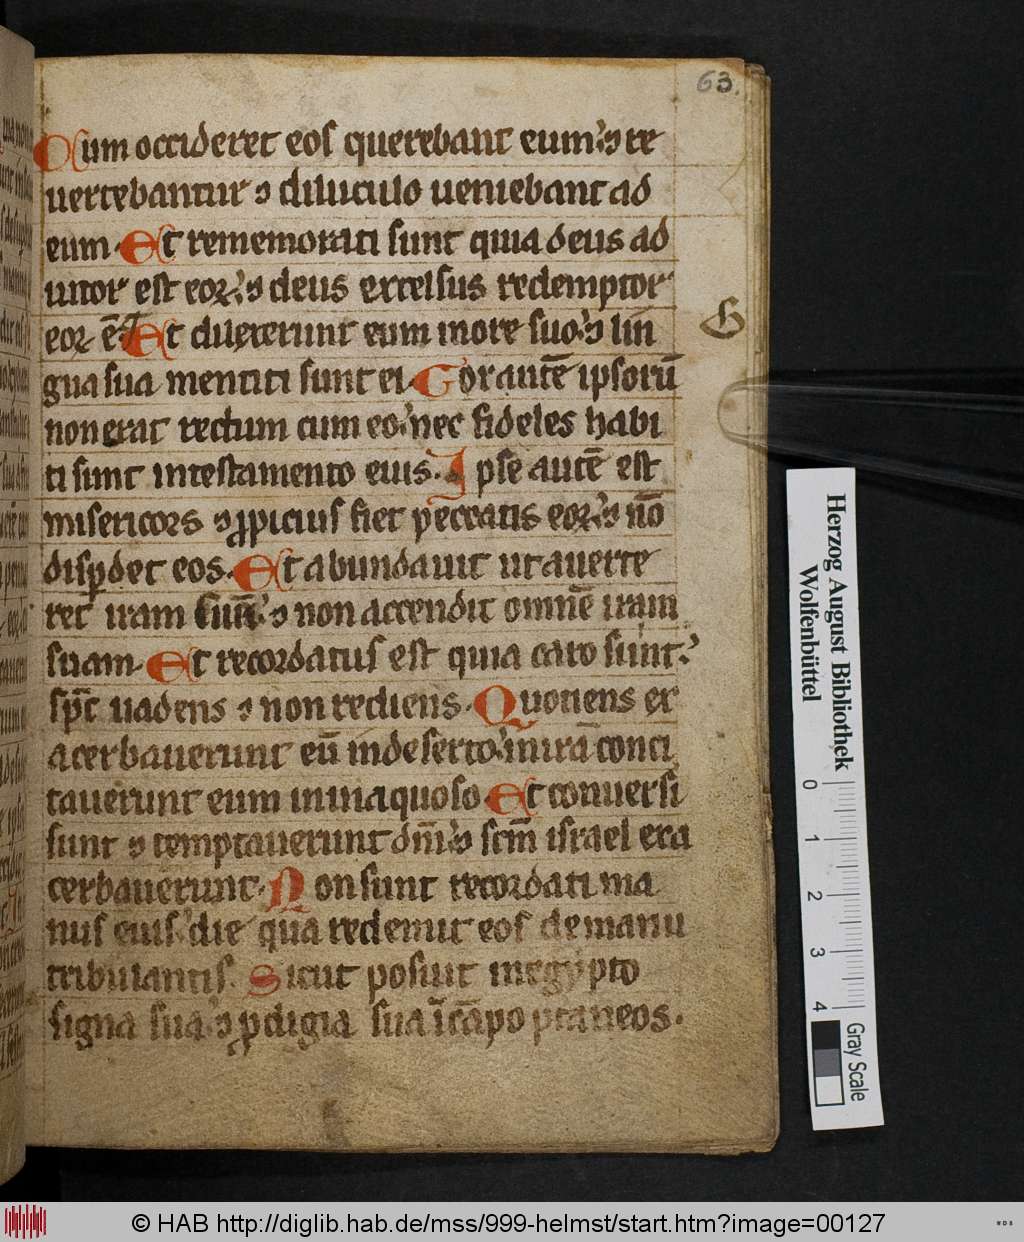 63.
Cum occideret eos querebant eum ⁊ re
uertebantur ⁊ diluculo ueniebant ad
eum. Et rememorati sunt quia deus ad
iutor est eoꝝ ⁊ deus excelsus redemptor
eoꝝ ē. Et dilexerunt eum in ore suo ⁊ lin
gua sua mentiti sunt ei. Cor autē ipsorū
non erat rectum cum eo nec fideles habi
ti sunt in testamento eius. Ipse autē est
misericors ⁊ ꝓpicius fiet peccatis eoꝝ ⁊ nō
disꝑdet eos. Et abundauit ut auerte
ret iram suā ⁊ non accendit omnē iram
suam. Et recordatus est quia caro sunt
sp̄c uadens ⁊ non rediens. Quotiens ex
acerbauerunt eū in deserto in irā conci
tauerunt eum in inaquoso Et conuersi
sunt ⁊ temptauerunt dm̄ ⁊ scm̄ israel exa
cerbauerunt. Non sunt recordati ma
nus eius die qua redemit eos de manu
tribulantis. Sicut posuit in egypto
signa sua ⁊ ꝓdigia sua ī cāpo taneos.
Herzog August Bibliothek
Wolfenbüttel
0 1 2 3 4
Gray Scale
© HAB http://diglib.hab.de/mss/999-helmst/start.htm?image=00127